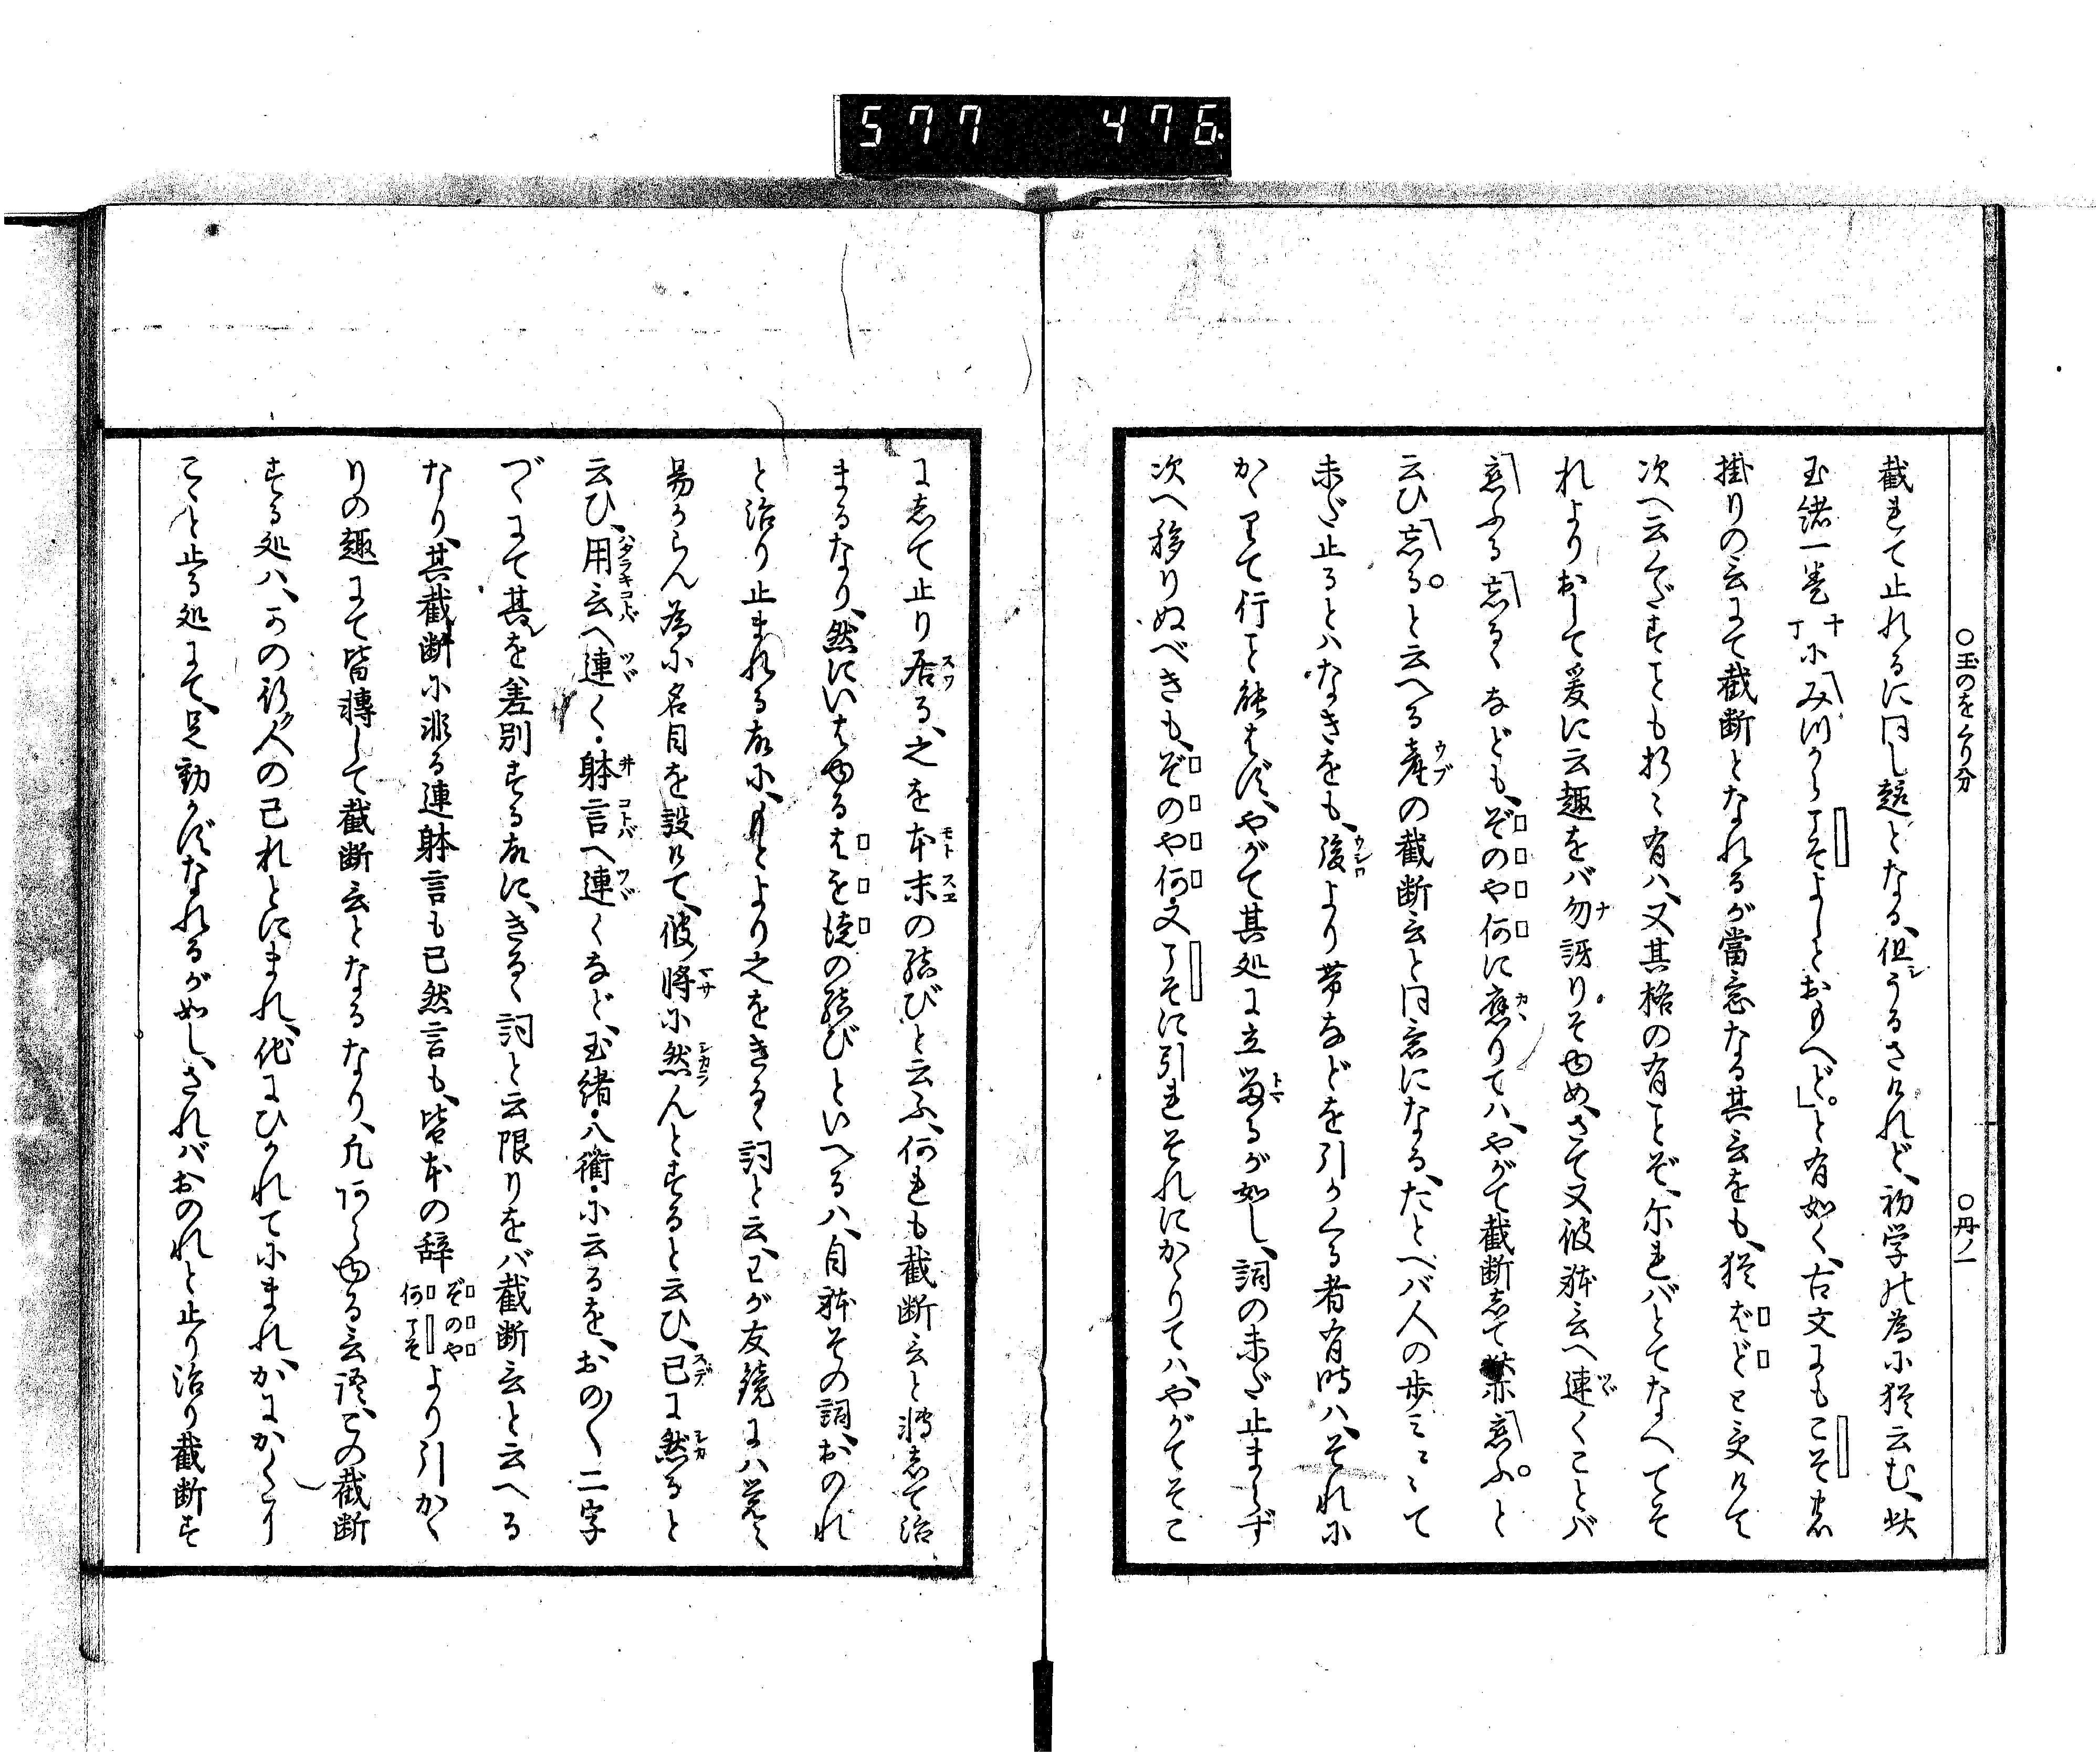 577 476
○玉のをくり分 ○丹ノ一
截れて止れるに同し趣となる、但シうるさけれど、初学の為に猶云む、此
玉緒一巻 十丁 に「みつからこそよしとおもへど。」と有如く、古文にもこそ
掛りの言にて截断となれるが當意なる其言をも、猶ばどと受けて
次へ云くだすことも折々有ハ、又其格の有ことぞ、尓れバとてなべてそ
れよりおして爰に云趣をバ勿ナ訝りそゆめ、さて又彼躰言へ連ツヾくことバ
「ふる「るゝなども、ぞのや何に應カヽりてハ、やがて截断して「ふ。と
云ひ「る。と云へる産ウブの截断言と同意になる、たとへバ人の歩ミにて
未だ止るとハなきをも、後ウシロより帯などを引くる者有時ハ、それに
かゝりて行こと能はず、やがて其処に立留トマるが如し、詞の未だ止まらず
次へ移りぬべきも、ぞのや何又こそに引れそれにかゝりてハ、やがてそこ
にして止り居スワる、之を本末モトスヱの結びと云ふ、何れも截断言と轉して治
まるなり、然にいはゆるはも徒の結びといへるハ、自躰その詞、おのれ
と治り止まれる故に、もとより之をきるゝ詞と云、わが友鏡にハ覚え
易からん為に名目を設けて、彼将マサに然シカランんとすると云ひ、已スデに然シカると
云ひ、用言ハタラキコトバへ連ツヾく・躰言ヰコトバへ連ツヾくなど、玉緒・八衢・に云るを、おの〱二字
づゝにて其を差別する故に、きるゝ詞と云限りをバ截断言と云へる
なり、其截断に非る連躰言も已然言も、皆本の辞 ぞのや何こそ より引かく
りの趣にて皆轉して截断言となるなり、凡何らゆる言語、この截断
する処ハ、この行人の己れとにまれ、他にひかれてにまれ、かにかくり
こゝと止る処にて、足動かずなれるが如し、されバおのれと止り治り截断す